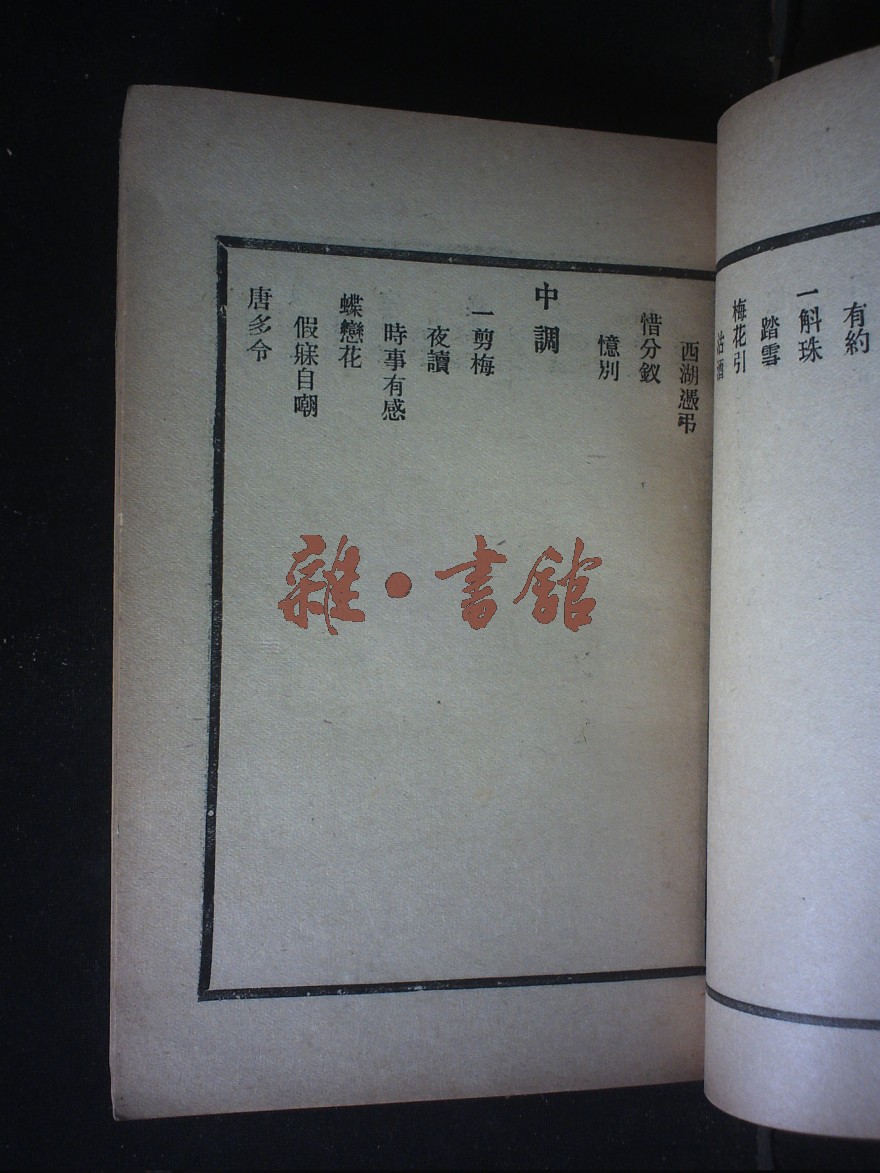 有約
一斛珠
踏雪
梅花引
沽酒
西湖憑弔
惜分釵
憶別
中調
一剪梅
夜讀
時事有感
蝶戀花
假寐自嘲
唐多令
雜·書館